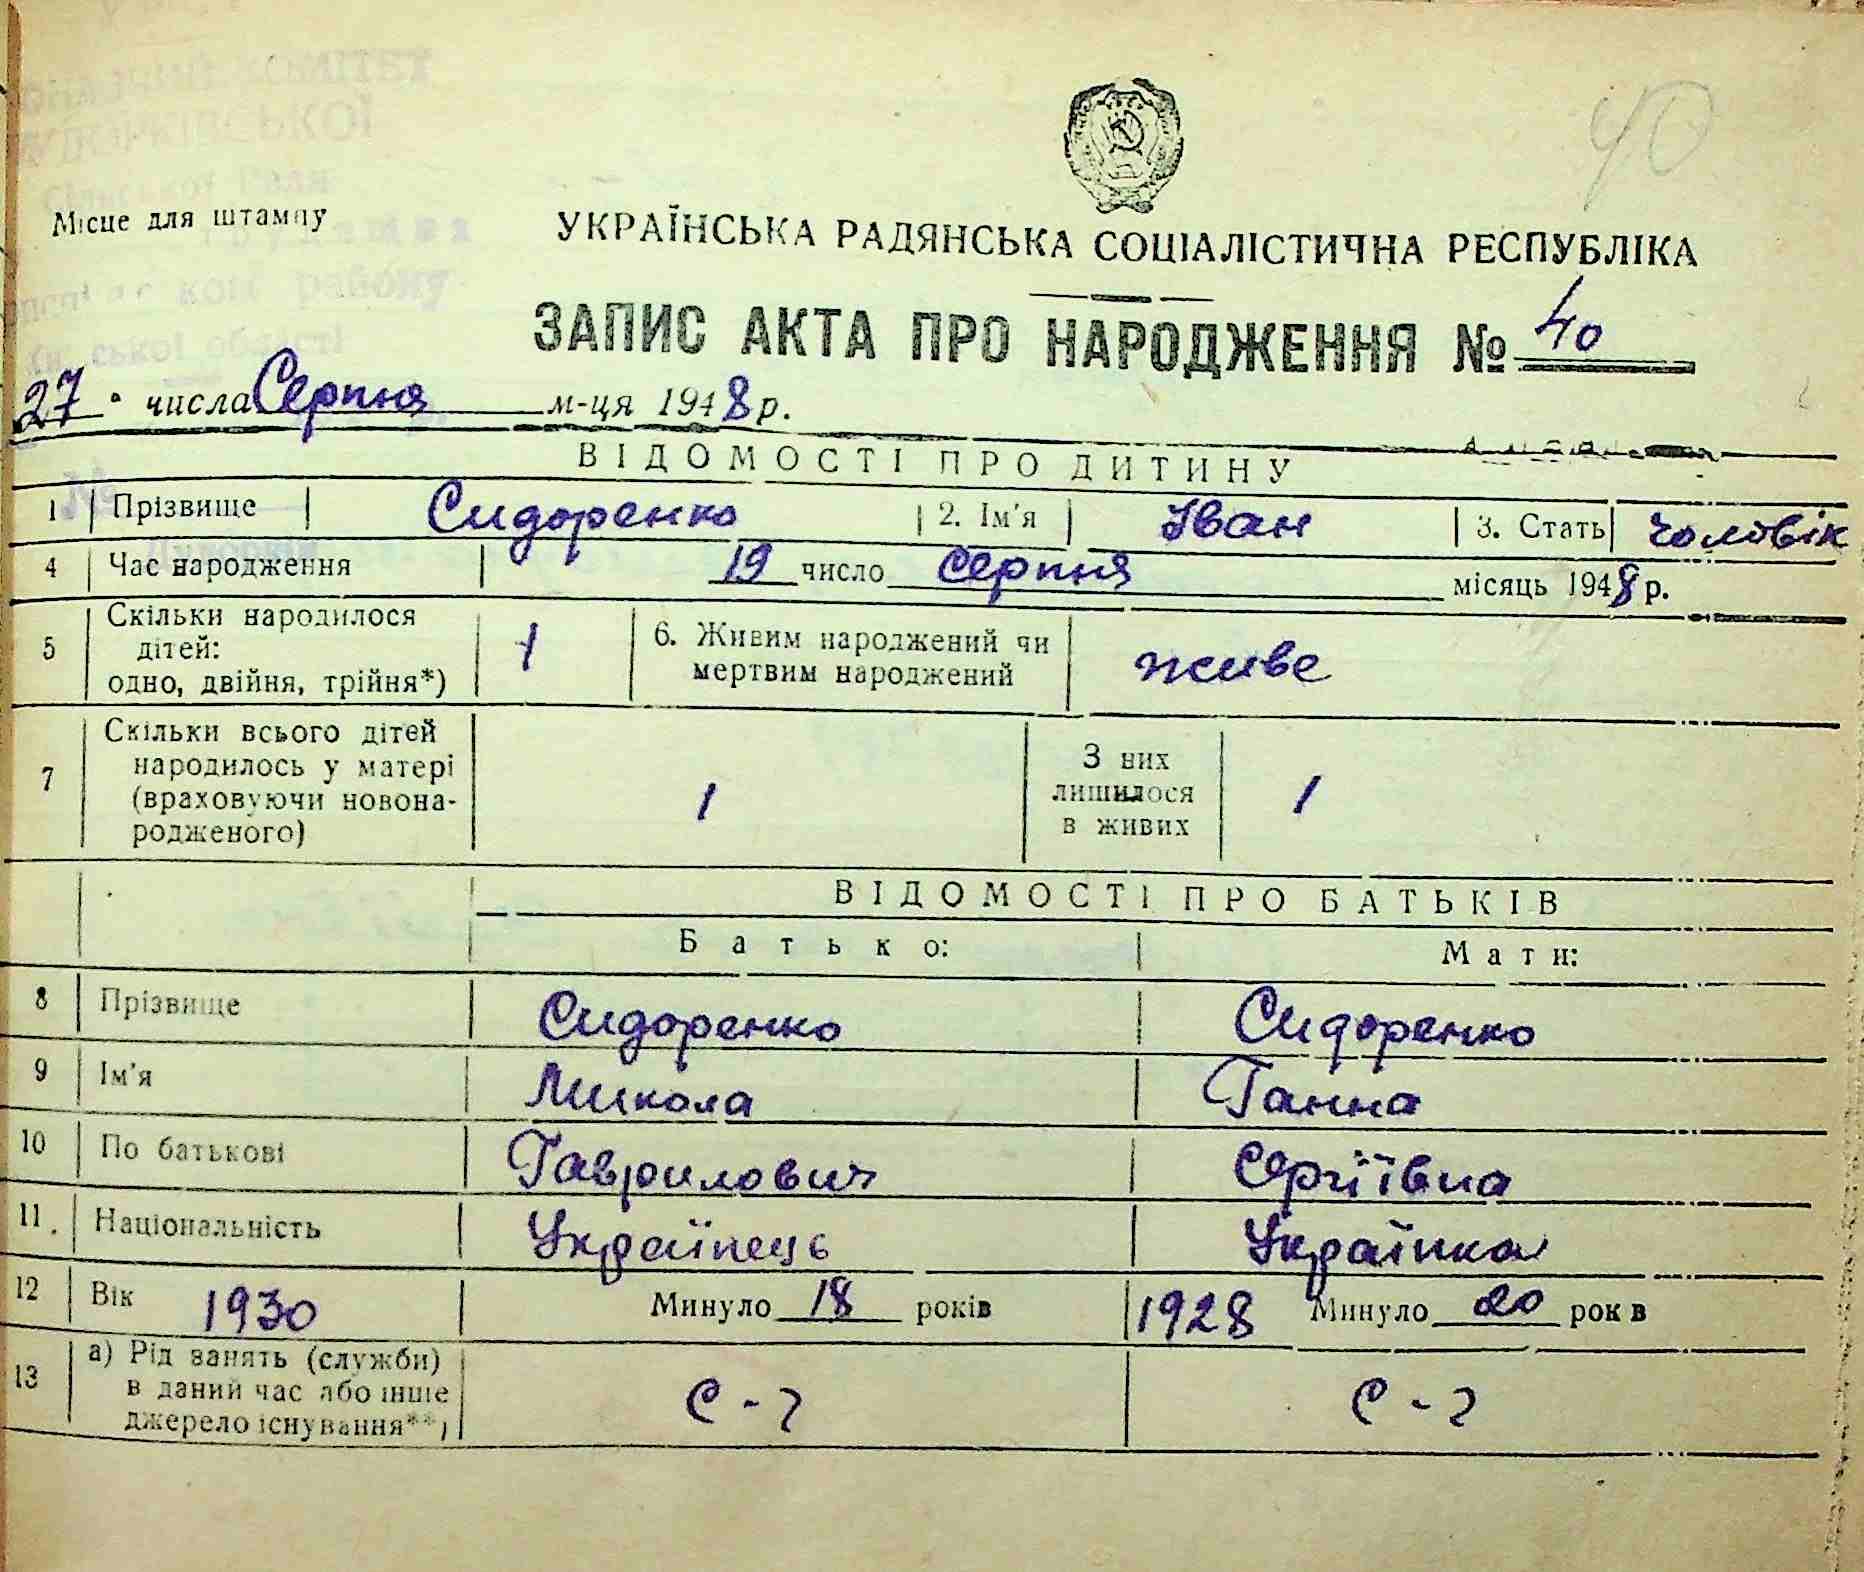 40
Місце для штампу
УКРАЇНСЬКА РАДЯНСЬКА СОЦІАЛІСТИЧНА РЕСПУБЛІКА
ЗАПИС АКТА ПРО НАРОДЖЕННЯ № 40
27 числа Серпня м-ця 1948 р.
ВІДОМОСТІ ПРО ДИТИНУ
1 Прізвище Сидоренко 2. Ім'я Іван 3. Стать чоловік
4 Час народження 19 число Серпня місяць 1948 р.
5 Скільки народилося дітей: одно, двійня, трійня*) 1 6. Живим народжений чи мертвим народжений живе
7 Скільки всього дітей народилось у матері (враховуючи новонародженого) 1 З них лишилося в живих 1
ВІДОМОСТІ ПРО БАТЬКІВ
Батько: Мати:
8 Прізвище Сидоренко Сидоренко
9 Ім'я Микола Ганна
10 По батькові Гаврилович Сергіївна
11. Національність Українець Українка
12 Вік 1930 Минуло 18 років 1928 Минуло 20 рок в
13 а) Рід занять (служби) в даний час або інше джерело існування**) С-г С-г